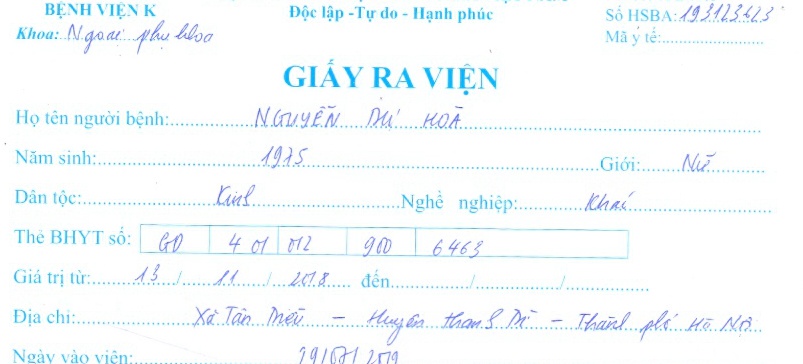 BỆNH VIỆN K Độc lập -Tự do - Hạnh phúc Số HSBA: 193123623
Khoa: Ngoại phụ khoa Mã y tế:
GIẤY RA VIỆN
Họ tên người bệnh: NGUYỄN THỊ HOÀ
Năm sinh: 1975 Giới: Nữ
Dân tộc: Kinh Nghề nghiệp: Khác
Thẻ BHYT số: GD 4 01 012 900 6463
Giá trị từ: 13 / 11 / 2018 đến / /
Địa chỉ: Xã Tân Triều - Huyện Thanh Trì - Thành phố Hà Nội
Ngày vào viện: /2019